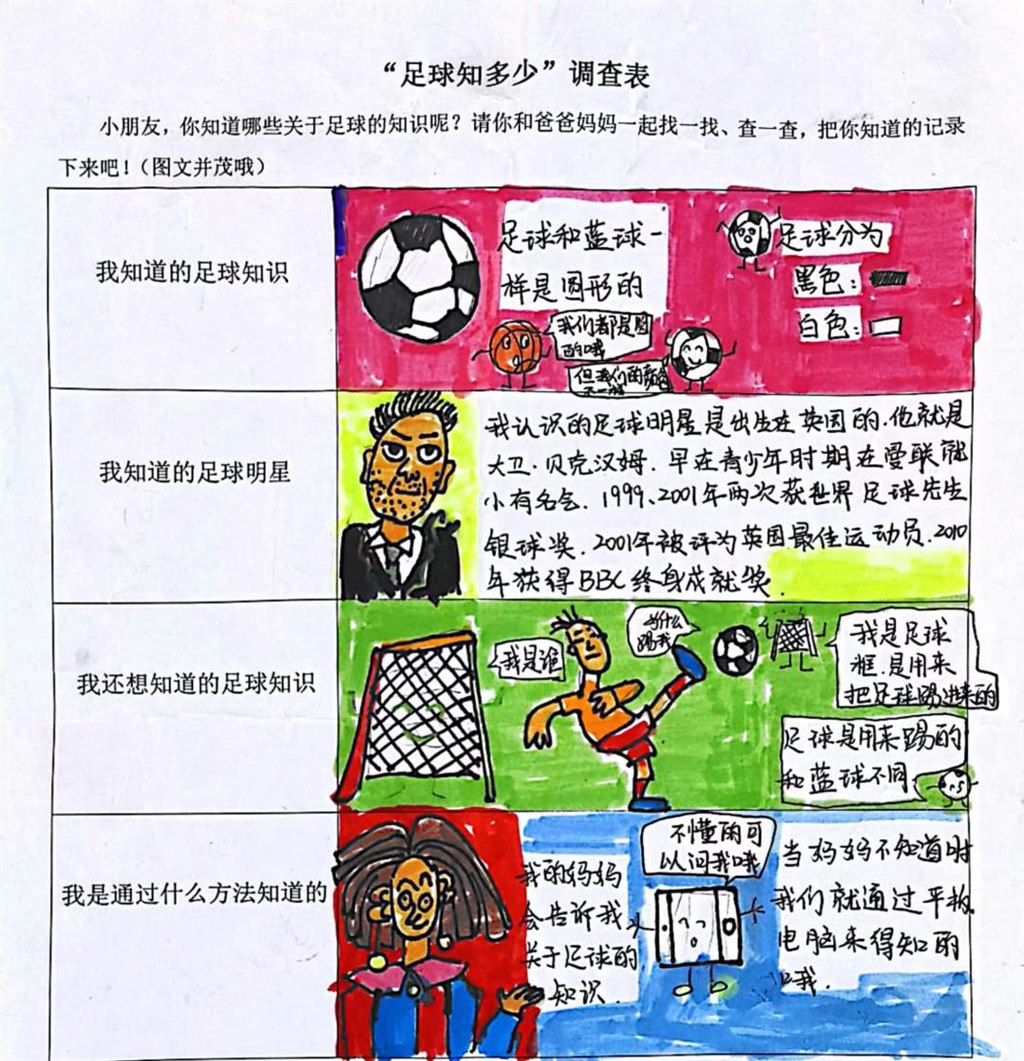 “足球知多少”调查表
小朋友，你知道哪些关于足球的知识呢？请你和爸爸妈妈一起找一找、查一查，把你知道的记录
下来吧！（图文并茂哦）
我知道的足球知识
足球和蓝球一
样是圆形的
我们都是圆
的哦
但我们的颜色
不一样
足球分为
黑色：
白色：
我知道的足球明星
我认识的足球明星是出生在英国的.他就是
大卫·贝克汉姆.早在青少年时期在曼联就
小有名气.1999、2001年两次获世界足球先生
银球奖.2001年被评为英国最佳运动员.2010
年获得BBC终身成就奖.
我还想知道的足球知识
我是谁
为什么
踢我
我是足球
框.是用来
把足球踢进来的
足球是用来踢的
和蓝球不同
我是通过什么方法知道的
我的妈妈
会告诉我
关于足球的
知识.
不懂的可
以问我哦
当妈妈不知道时
我们就通过平板
电脑来得知的
哦.